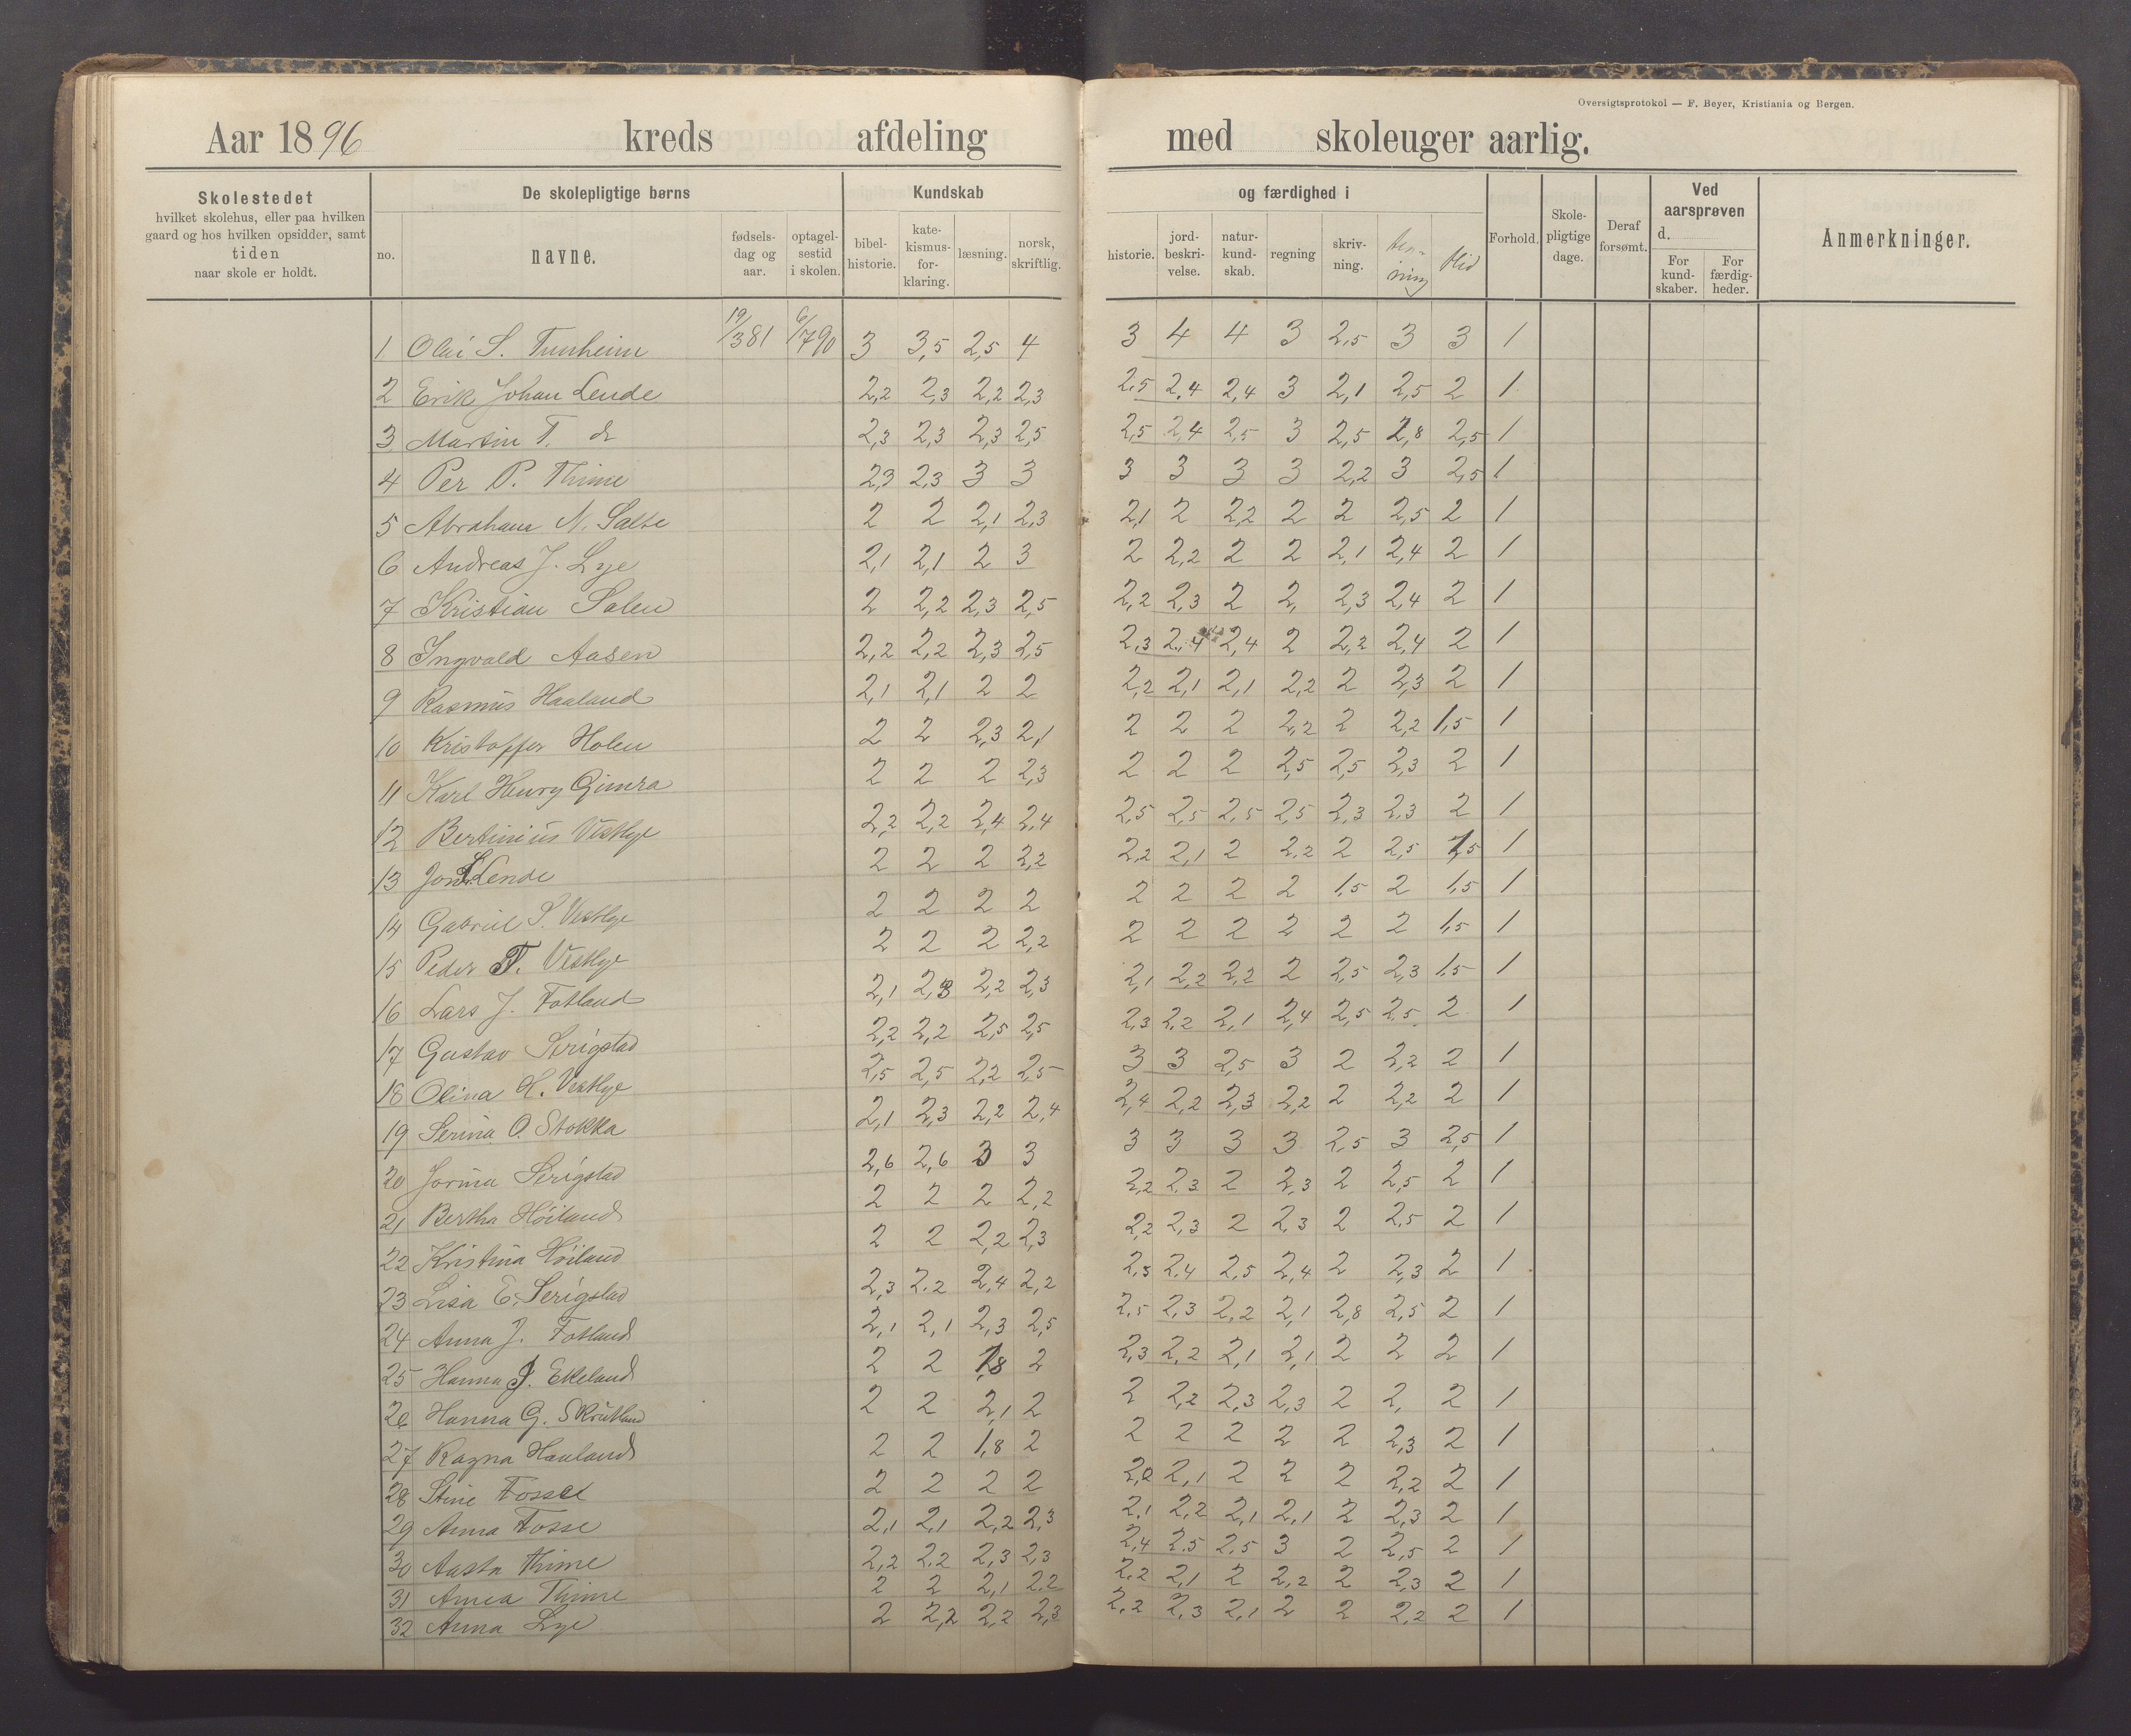 Oversigtsprotokol — F. Beyer, Kristiania og Bergen.
Aar 1896 kreds afdeling med skoleuger aarlig.
Skolestedet
hvilket skolehus, eller paa hvilken
gaard og hos hvilken opsidder, samt
tiden
naar skole er holdt.
De skolepligtige børns
no.
navne.
fødsels-
dag og
aar.
optagel-
sestid
i skolen.
Kundskab
bibel-
historie.
kate-
kismus-
for-
klaring.
læsning.
norsk,
skriftlig.
og færdighed i
historie.
jord-
beskri-
velse.
natur-
kund-
skab.
regning
skriv-
ning.
flid
Forhold.
Skole-
pligtige
dage.
Deraf
forsømt.
Ved
aarsprøven
d.
For
kund-
skaber.
For
færdig-
heder.
Anmerkninger.
1 Olai S. Tunheim 19/3 81 6/7 90 3 3,5 2,5 4 3 4 4 3 2,5 3 3 1
2 Erik Johan Lende 2,2 2,3 2,2 2,3 2,5 2,4 2,4 3 2,1 2,5 2 1
3 Martin T. d 2,3 2,3 2,3 2,5 2,5 2,4 2,5 3 2,5 2,8 2,5 1
4 Per P. Thime 2,3 2,3 3 3 3 3 3 3 2,2 3 2,5 1
5 Abraham N. Salte 2 2 2,1 2,3 2,1 2 2,2 2 2 2,5 2 1
6 Andreas J. Lye 2,1 2,1 2 3 2 2,2 2 2 2,1 2,4 2 1
7 Kristian Salen 2 2,2 2,3 2,5 2,2 2,3 2 2, 2,3 2,4 2 1
8 Ingvald Aasen 2,2 2,2 2,3 2,5 2,3 2,4 2,4 2 2,2 2,4 2 1
9 Rasmus Haaland 2,1 2,1 2 2 2,2 2,1 2,1 2,2 2 2,3 2 1
10 Kristoffer Holen 2 2 2,3 2,1 2 2 2 2,2 2 2,2 1,5 1
11 Karl Henry Gimra 2 2 2 2,3 2 2 2 2,5 2,5 2,3 2 1
12 Bertinius Vestlye 2,2 2,2 2,4 2,4 2,5 2,5 2,5 2,5 2,3 2,3 2 1
13 Jon Lende 2 2 2 2,2 2,2 2,1 2 2,2 2 2,5 1,5 1
14 Gabriel S. Vestlye 2 2 2 2 2 2 2 2 1,5 2 1,5 1
15 Peder T. Vestlye 2 2 2 2,2 2 2 2 2 2 2 1,5 1
16 Lars J. Fotland 2,1 2,3 2,2 2,3 2,1 2,2 2,2 2 2,5 2,3 1,5 1
17 Gustav Serigstad 2,2 2,2 2,5 2,5 2,3 2,2 2,1 2,4 2,5 2,5 2 1
18 Olina H. Vestlye 2,5 2,5 2,2 2,5 3 3 2,5 3 2 2,2 2 1
19 Serina O. Stokka 2,1 2,3 2,2 2,4 2,4 2,2 2,3 2,2 2 2,2 2 1
20 Jorina Serigstad 2,6 2,6 3 3 3 3 3 3 2,5 3 2,5 1
21 Bertha Höiland 2 2 2 2,2 2,2 2,3 2 2,3 2 2,5 2 1
22 Kristina Höiland 2 2 2,2 2,3 2,2 2,3 2 2,3 2 2,5 2 1
23 Lisa E. Serigstad 2,3 2,2 2,4 2,2 2,5 2,4 2,5 2,4 2 2,3 2 1
24 Anna J. Fotland 2,1 2,1 2,3 2,5 2,5 2,3 2,2 2,1 2,8 2,5 2 1
25 Hanna J. Ekeland 2 2 1,8 2 2,3 2,2 2,1 2,1 2 2 2 1
26 Hanna G. Skrutland 2 2 2,1 2 2 2,2 2,3 2,3 2 2, 2 1
27 Ragna Haaland 2 2 1,8 2 2 2 2 2 2 2,3 2 1
28 Stine Fosse 2 2 2 2 2,2 2,1 2 2 2 2,2 2 1
29 Anna Fosse 2,1 2,1 2,2 2,3 2,1 2,2 2,1 2,1 2 2,3 2 1
30 Aasta Thime 2,2 2,2 2,3 2,3 2,4 2,5 2,5 3 2 2,5 2 1
31 Anna Thime 2 2 2,1 2,2 2,2 2,1 2 2,2 2 2,3 2 1
32 Anna Lye 2 2,2 2,2 2,3 2,2 2,3 2,1 2 2 2,2 2 1